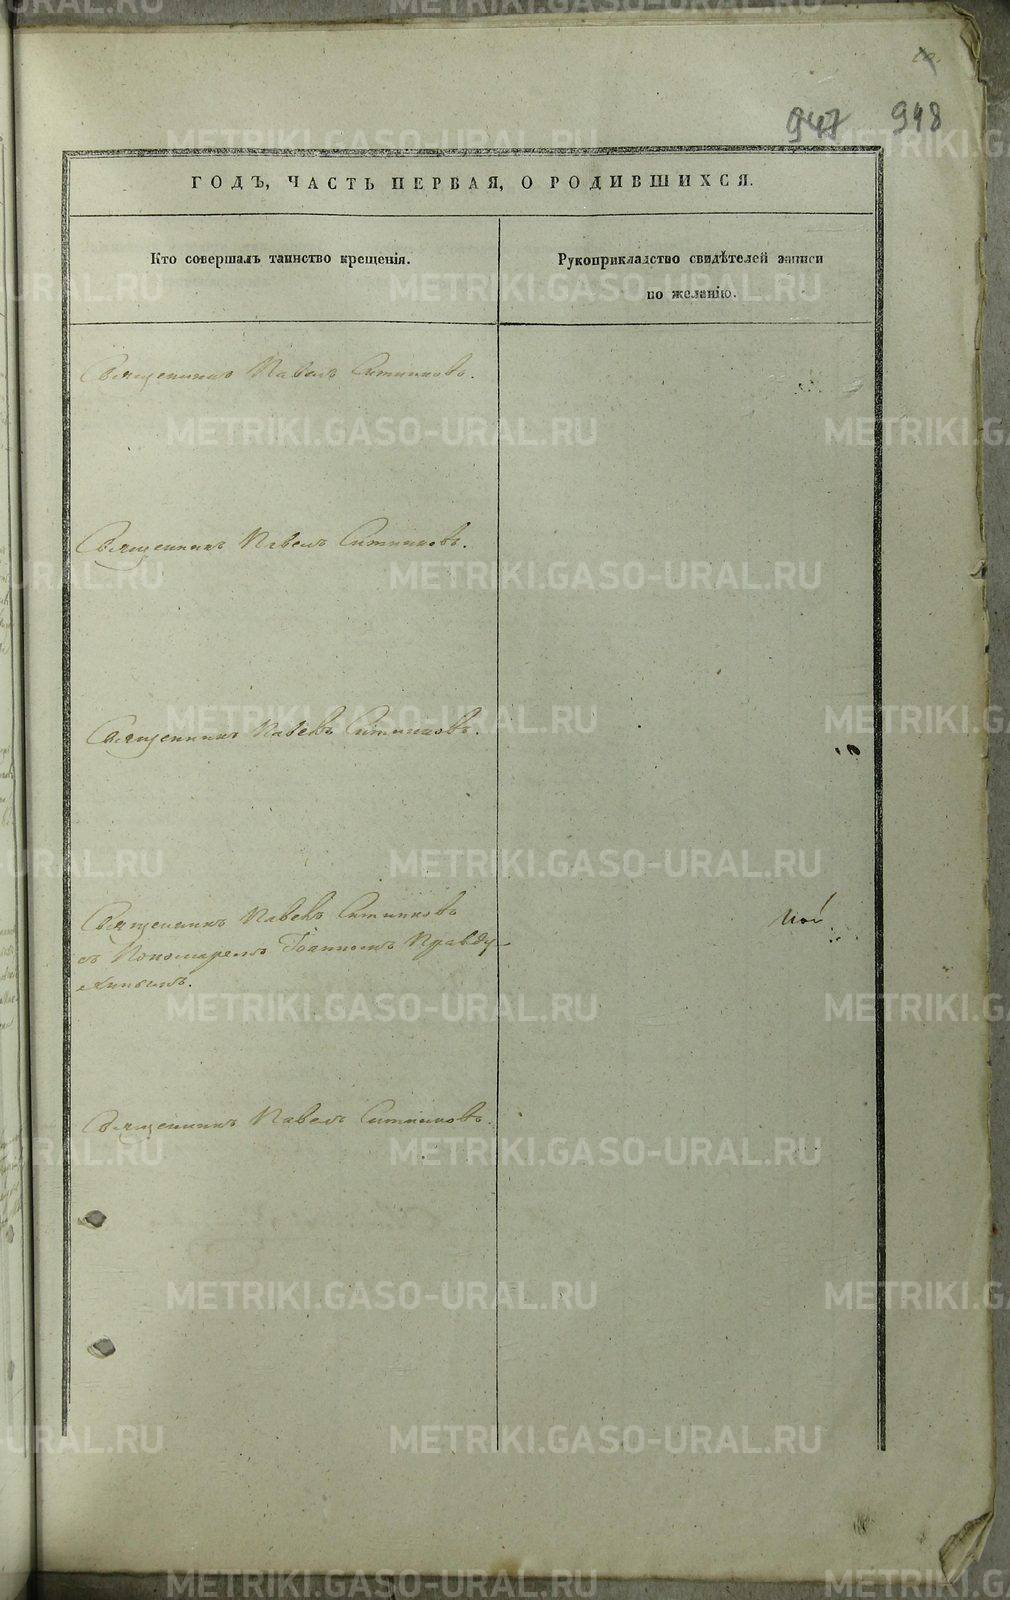 947 948
ГОДЪ, ЧАСТЬ ПЕРВАЯ, О РОДИВШИХСЯ.
Кто совершалъ таинство крещенія.
Рукоприкладство свидѣтелей записи
по желанію.
Священникъ Павелъ Ситниковъ.
Священникъ Павелъ Ситниковъ.
Священникъ Павелъ Ситниковъ.
Священникъ Павелъ Ситниковъ
съ Пономаремъ Іоанномъ Правду-
хинымъ.
Священникъ Павелъ Ситниковъ.
METRIKI.GASO-URAL.RU